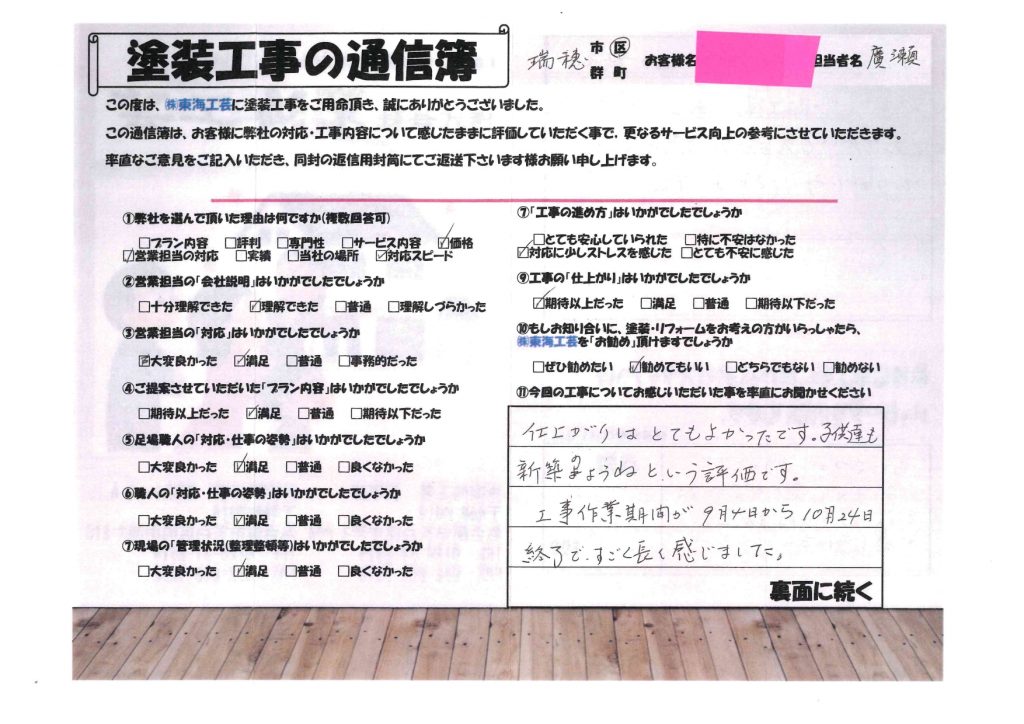 塗装工事の通信簿
瑞穂 市 区 群 町 お客様名 担当者名 廣瀬
この度は、㈱東海工芸に塗装工事をご用命頂き、誠にありがとうございました。
この通信簿は、お客様に弊社の対応・工事内容について感じたままに評価していただく事で、更なるサービス向上の参考にさせていただきます。
率直なご意見をご記入いただき、同封の返信用封筒にてご返送下さいます様お願い申し上げます。
①弊社を選んで頂いた理由は何ですか(複数回答可)
□プラン内容 □評判 □専門性 □サービス内容 ☑価格
☑営業担当の対応 □実績 □当社の場所 ☑対応スピード
②営業担当の「会社説明」はいかがでしたでしょうか
□十分理解できた ☑理解できた □普通 □理解しづらかった
③営業担当の「対応」はいかがでしたでしょうか
□大変良かった ☑満足 □普通 □事務的だった
④ご提案させていただいた「プラン内容」はいかがでしたでしょうか
□期待以上だった ☑満足 □普通 □期待以下だった
⑤足場職人の「対応・仕事の姿勢」はいかがでしたでしょうか
□大変良かった ☑満足 □普通 □良くなかった
⑥職人の「対応・仕事の姿勢」はいかがでしたでしょうか
□大変良かった ☑満足 □普通 □良くなかった
⑦現場の「管理状況(整理整頓等)はいかがでしたでしょうか
□大変良かった ☑満足 □普通 □良くなかった
⑦「工事の進め方」はいかがでしたでしょうか
□とても安心していられた □特に不安はなかった
☑対応に少しストレスを感じた □とても不安に感じた
⑨工事の「仕上がり」はいかがでしたでしょうか
☑期待以上だった □満足 □普通 □期待以下だった
⑩もしお知り合いに、塗装・リフォームをお考えの方がいらっしゃたら、
㈱東海工芸を「お勧め」頂けますでしょうか
□ぜひ勧めたい ☑勧めてもいい □どちらでもない □勧めない
⑪今回の工事についてお感じいただいた事を率直にお聞かせください
仕上がりはとてもよかったです。子供達も
新築のようねという評価です。
工事作業期間が9月4日から10月24日
終了で、すごく長く感じました。
裏面に続く